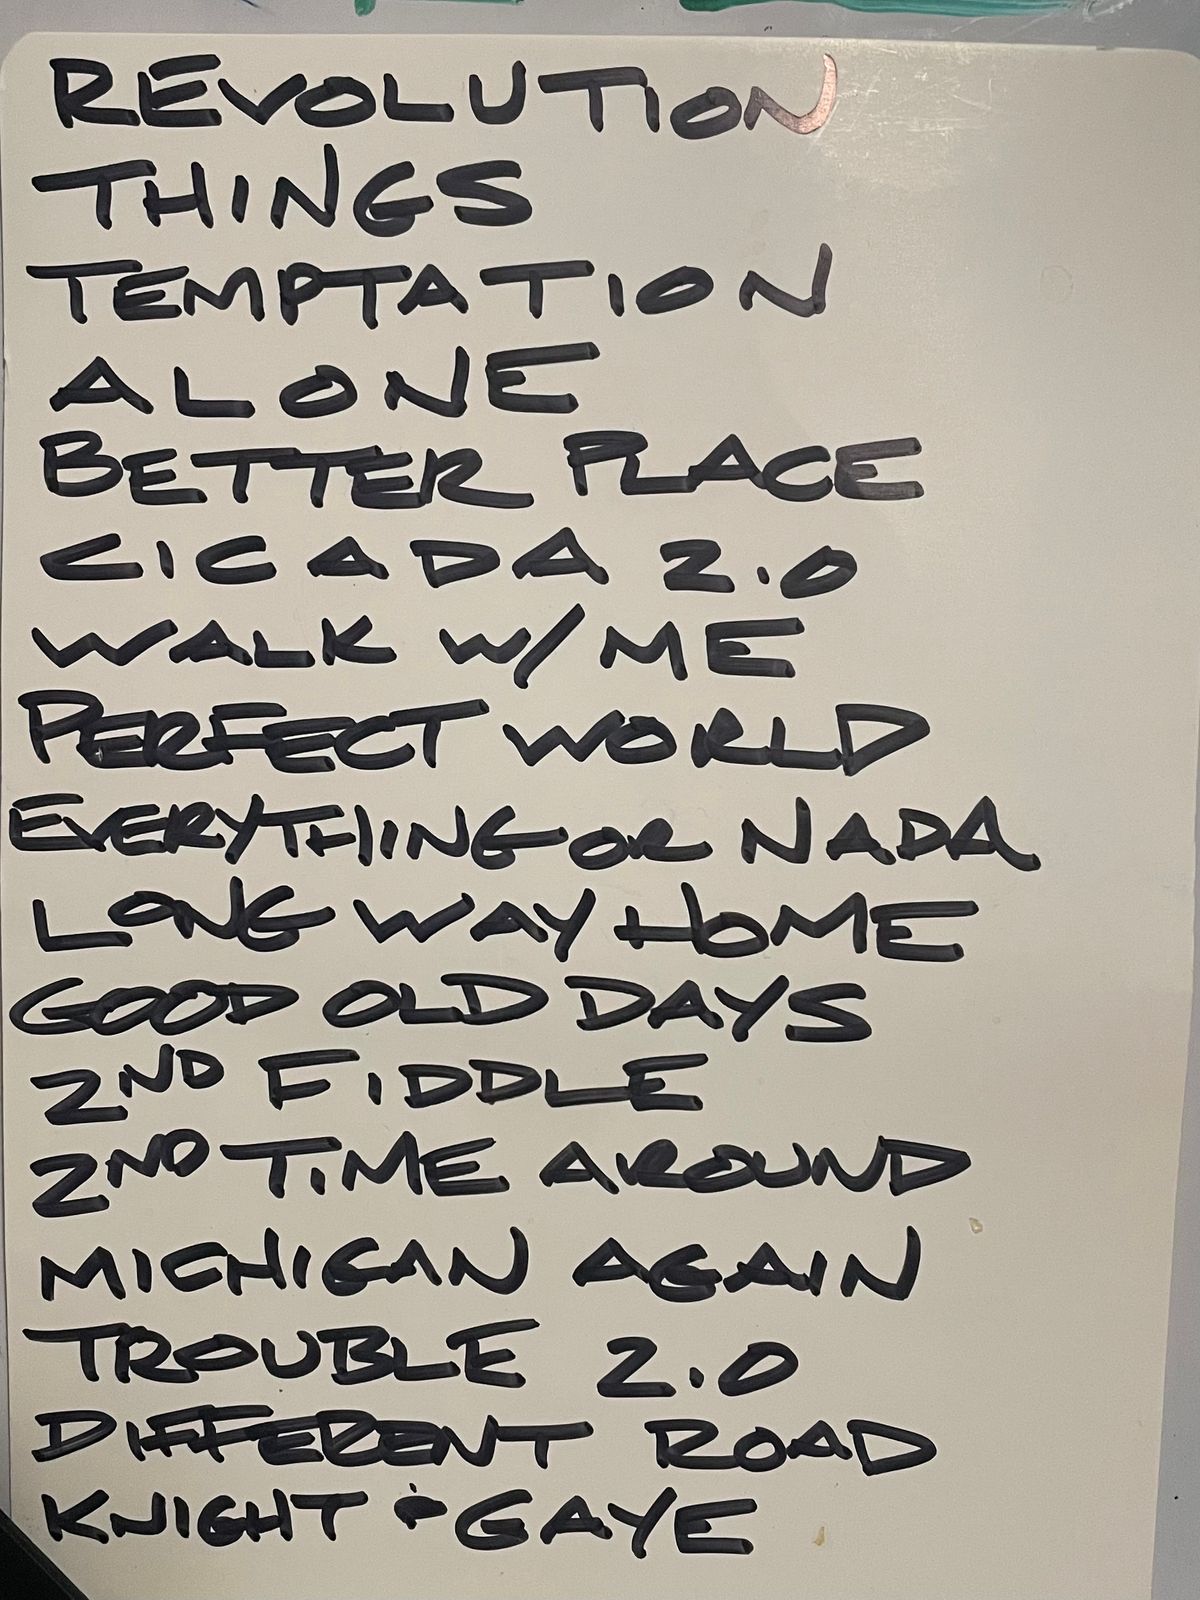 REVOLUTION
THINGS
TEMPTATION
ALONE
BETTER PLACE
CICADA 2.0
WALK W/ ME
PERFECT WORLD
EVERYTHING OR NADA
LONG WAY HOME
GOOD OLD DAYS
2ND FIDDLE
2ND TIME AROUND
MICHIGAN AGAIN
TROUBLE 2.0
DIFFERENT ROAD
KNIGHT & GAYE